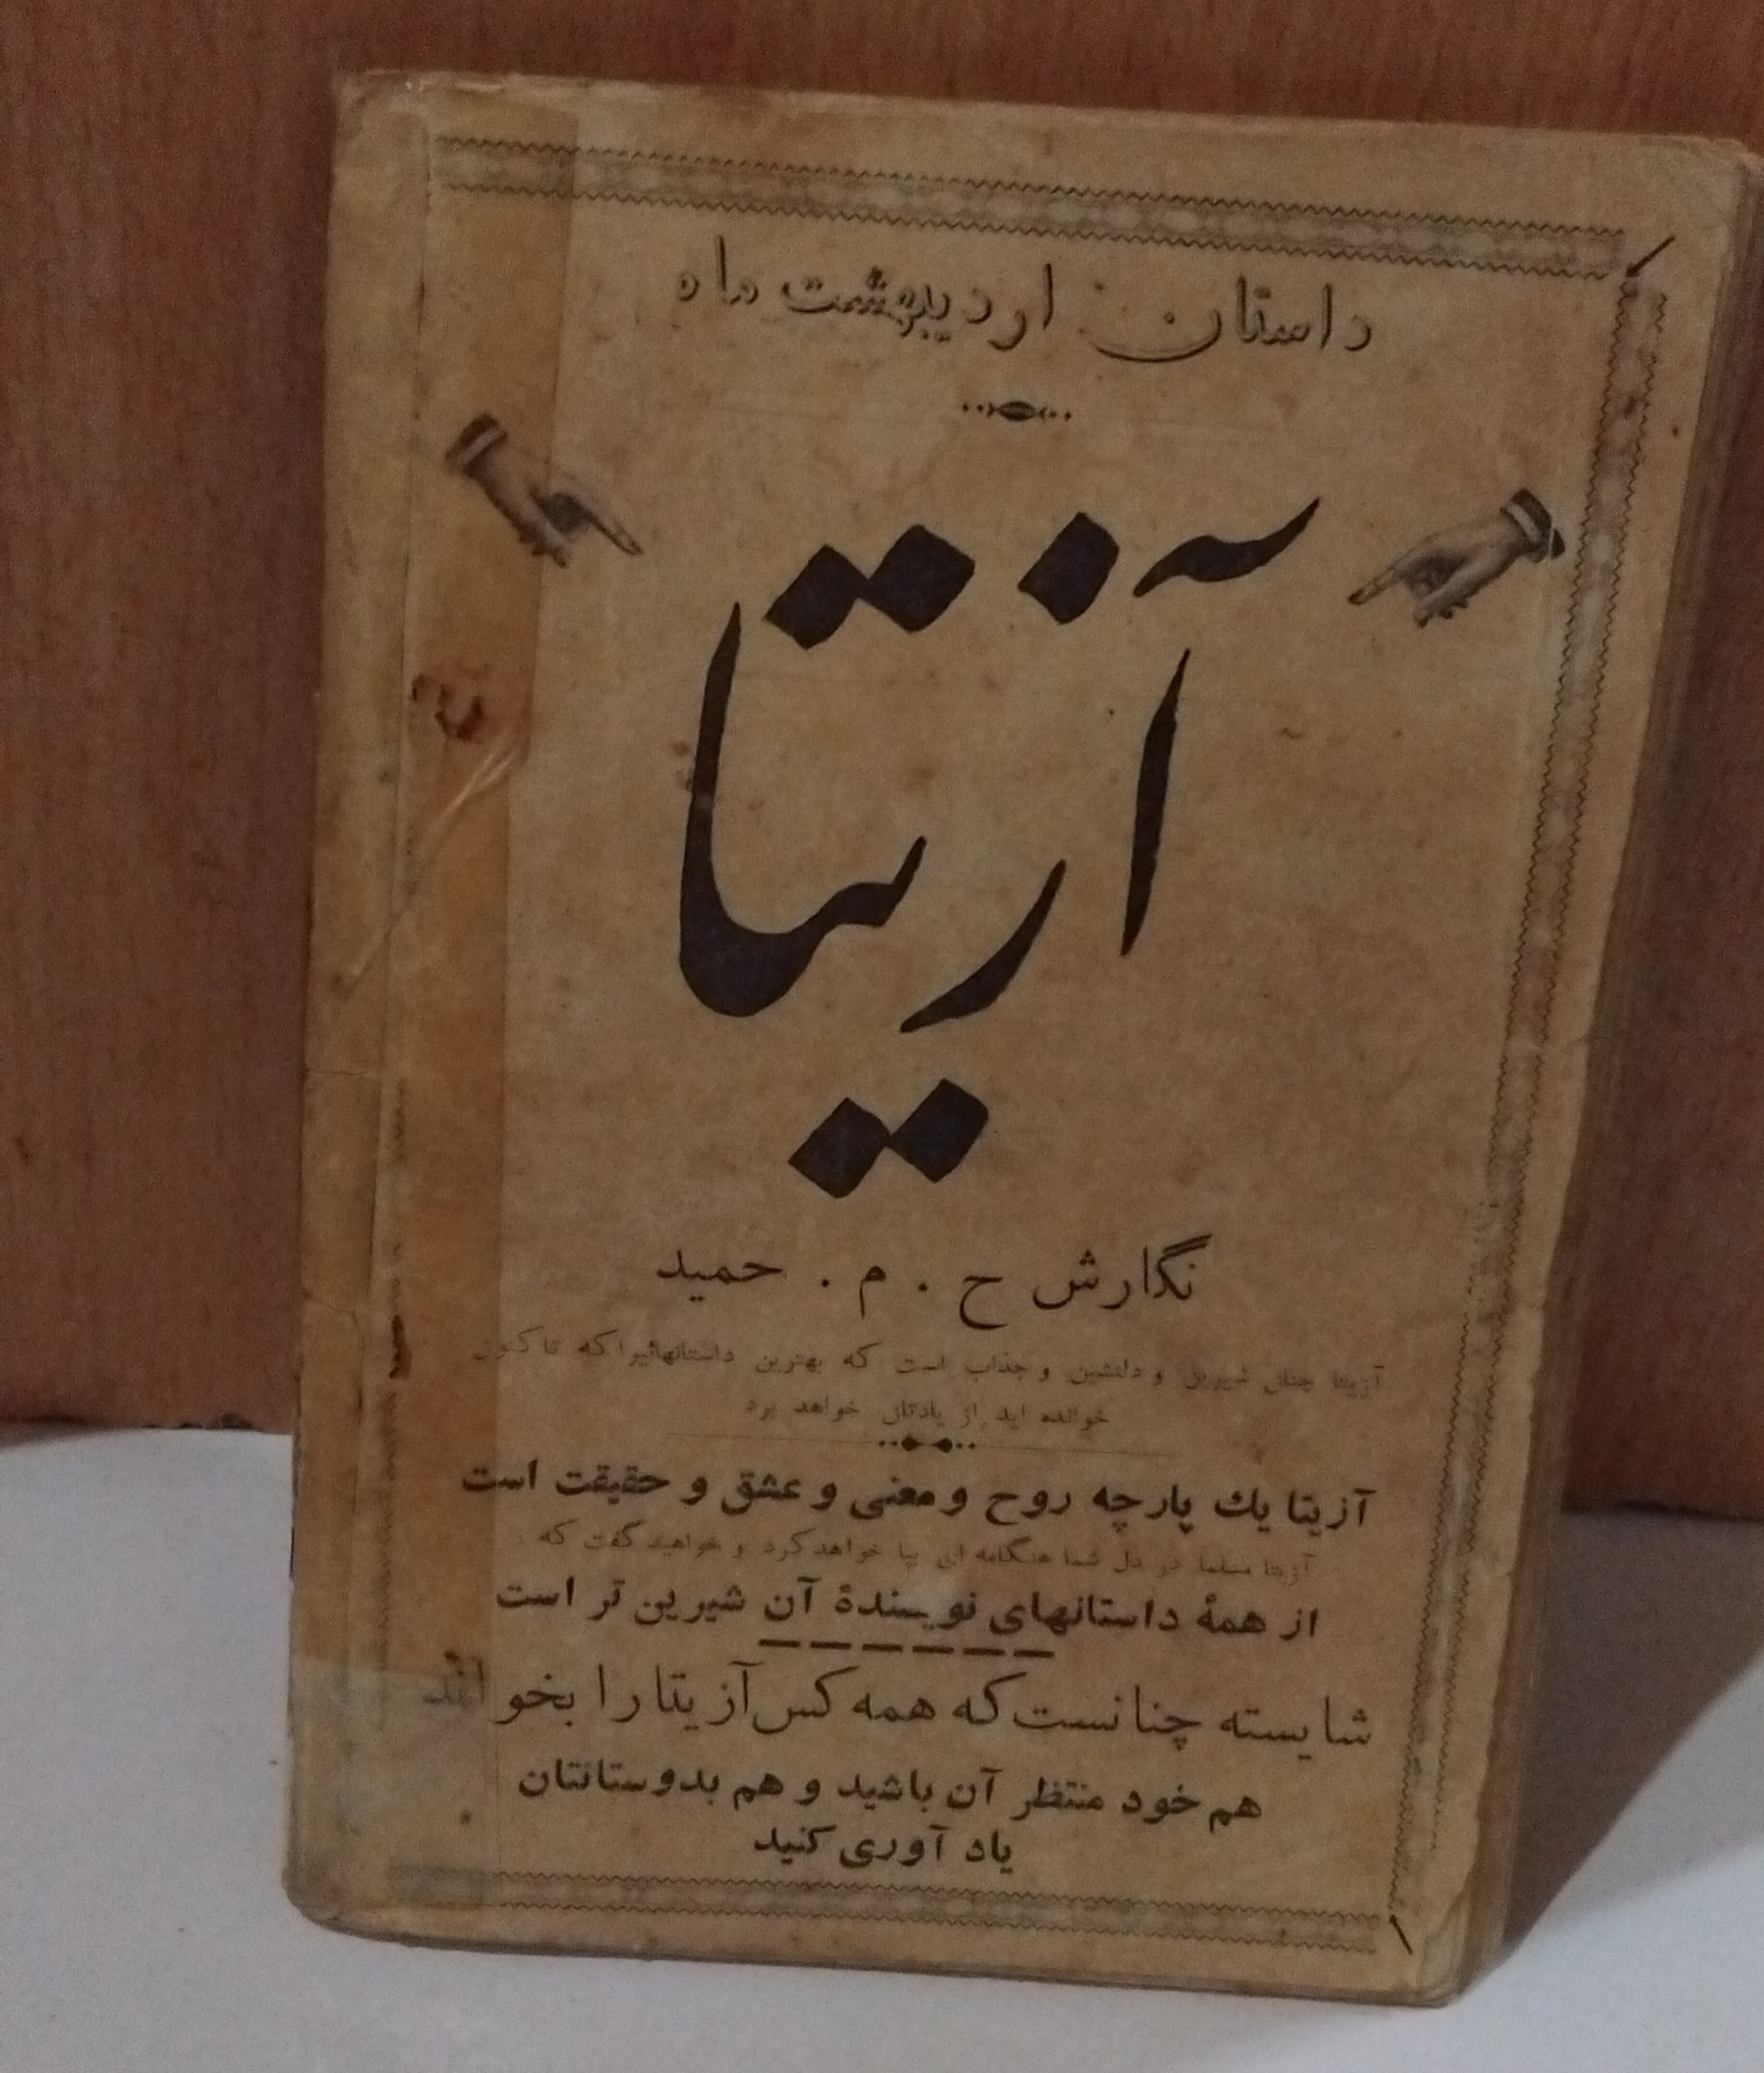 داستان اردیبهشت ماه
آزیتا
نگارش ح . م . حمید
آزیتا چنان شیرین و دلنشین و جذاب است که بهترین داستانهائیرا که تا کنون
خوانده اید از یادتان خواهد برد
آزیتا یك پارچه روح و معنی و عشق و حقیقت است
آزیتا مسلما در دل شما هنگامه ای بپا خواهد کرد و خواهید گفت که :
از همهٔ داستانهای نویسندهٔ آن شیرین تر است
شایسته چنانست که همه کس آزیتا را بخواند
هم خود منتظر آن باشید و هم بدوستانتان
یاد آوری کنید